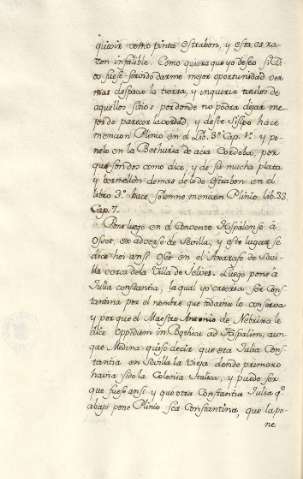 quivir como pinta estrabon, y esta es ra-
zon infalible. Como quiera que yo deseo si Di-
os fuese servido darme mejor oportunidad ver
mas despacio la tierra, y inquerir rastro de
aquellos sitios por donde no podra dejar me-
jor de parecer la verdad, y deste Sispo hace
mencion Plinio en el Lib. 3.º Cap. 1.º y po-
nelo en la Bethuria de acia Cordoba, por
que son dos como dice, y de su mucha plata
y bermellon demas de lo de estrabon en el
libro 3.º hace solemne mencion Plinio lib. 33
Cap. 7.
Pone luego en el Convento Hispalense á
Osset, en adverso de Sevilla, y este lugar se
dice hoi ansi Ose en el Axarafe de Sevi-
lla cerca de la Villa de Salteras. Luego pone á
Julia constantia, la qual yo creeria ser Con-
stantina por el nombre que todavia lo conserva
y por que el Maestro Antonio de Nebrixa le
dice Oppidum in Bethica ad Hispalem, aun
que Medina quiso decir que esta Julia Cons-
tantia en Sevilla la Vieja donde primero
havia sido la Colonia Italica, y puede ser
que fuese ansi y que otra Constantia Julia q.e
abajo pone Plinio sea Constantina, que la po-
ne